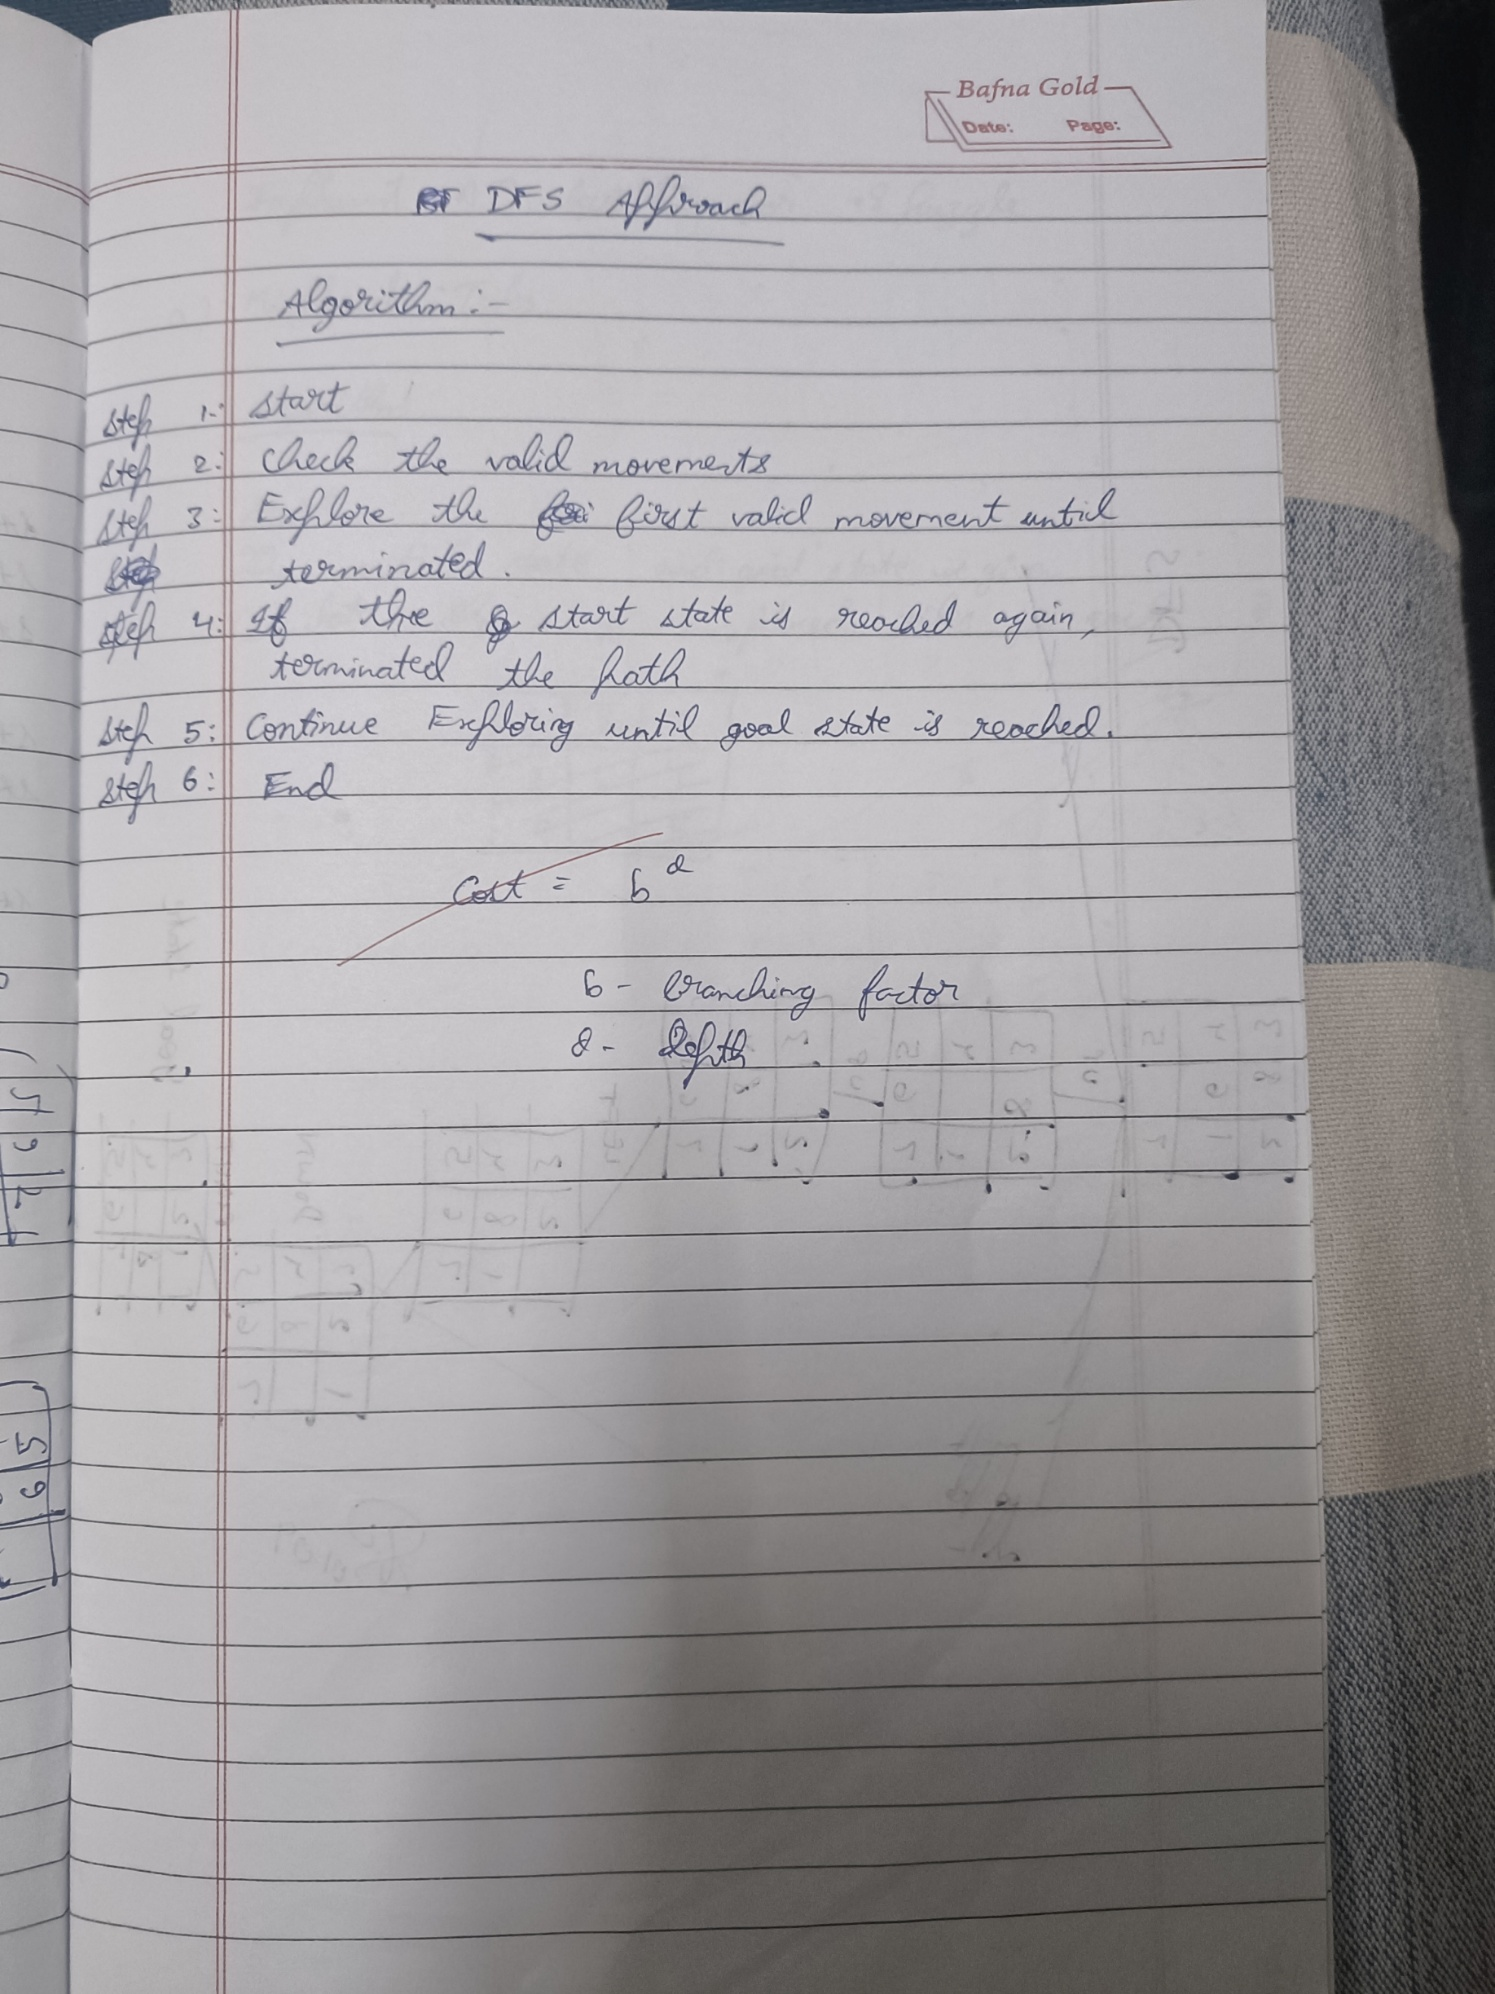 Bafna Gold
Date: Page:
DFS Approach
Algorithm :-
Step 1: Start
Step 2: Check the valid movements
Step 3: Explore the first valid movement until
terminated.
Step 4: If the start state is reached again,
terminated the path
Step 5: Continue Exploring until goal state is reached.
Step 6: End
Cost = b^d
b - branching factor
d - depth